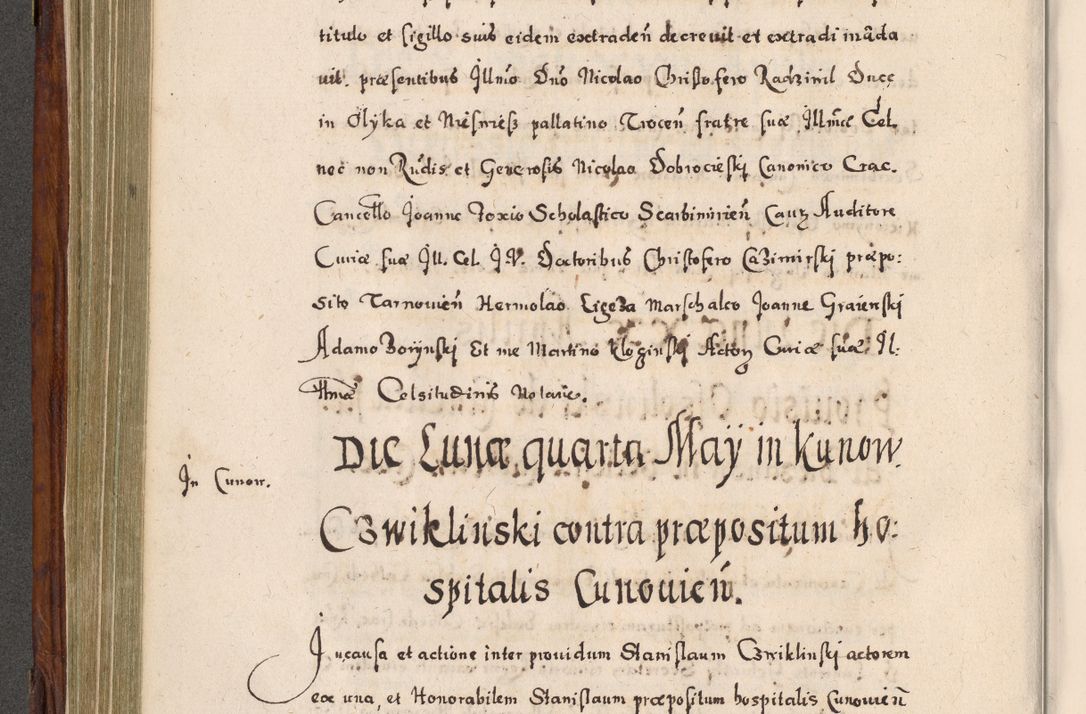 titulo et sigillo suis eidem extradeñ decreuit et extradi mãda
uit. præsentibus Illmo Dno Nicolao Christofero Radziuil Duce
in Olÿka et Nieswiesz pallatino Trocen̄ fratre suæ Illmæ Cel.
nec non Rndis et Generosis Nicolao Dobrocieski Canonico Crac.
Cancello Joanne Foxio Scholastico Scarbimirien̄ Cauz Auditore
Curiæ suæ Ill. Cel. I.V. Doctoribus Christofero Cazimirski præpo:
sito Tarnouien̄ Hermolao Ligeza Marschalco Joanne Graienski
Adamo Borÿnski Et me Martino Kloginski Actorz Curiæ suæ Il:
llmæ Celsitudinis Notario.
Die Lunæ quarta Maÿ in Kunow.
In Cunow.
Czwiklinski contra præpositum ho:
spitalis Cunouien̄.
In causa et actione inter prouidum Stanislaum Czwiklinski actorem
ex una, et Honorabilem Stanislaum præpositum hospitalis Cunouien̄